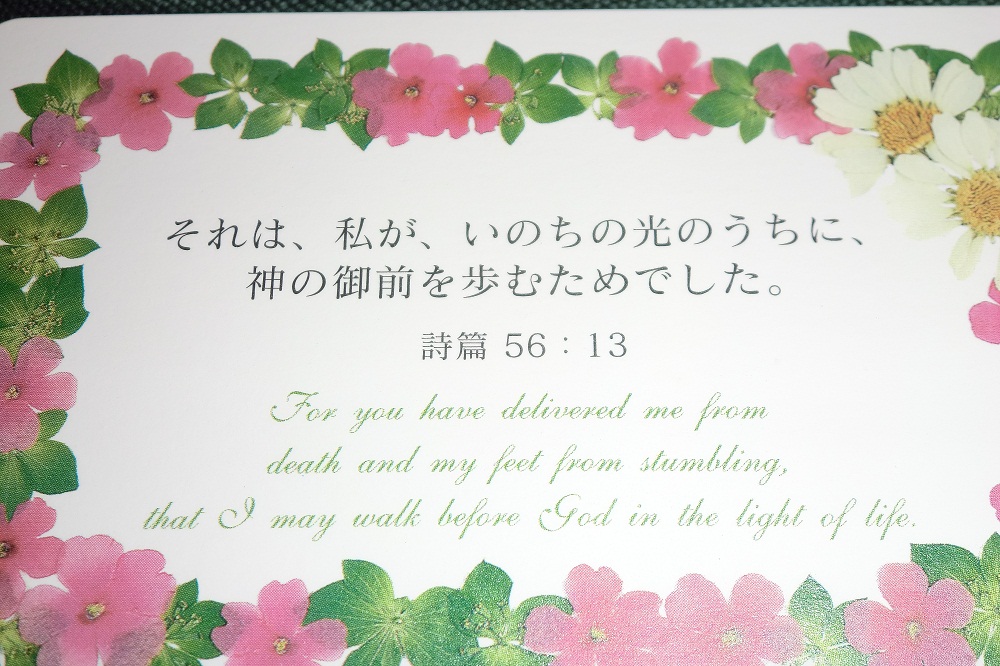 それは、私が、いのちの光のうちに、
神の御前を歩むためでした。
詩篇 56：13
For you have delivered me from
death and my feet from stumbling,
that I may walk before God in the light of life.